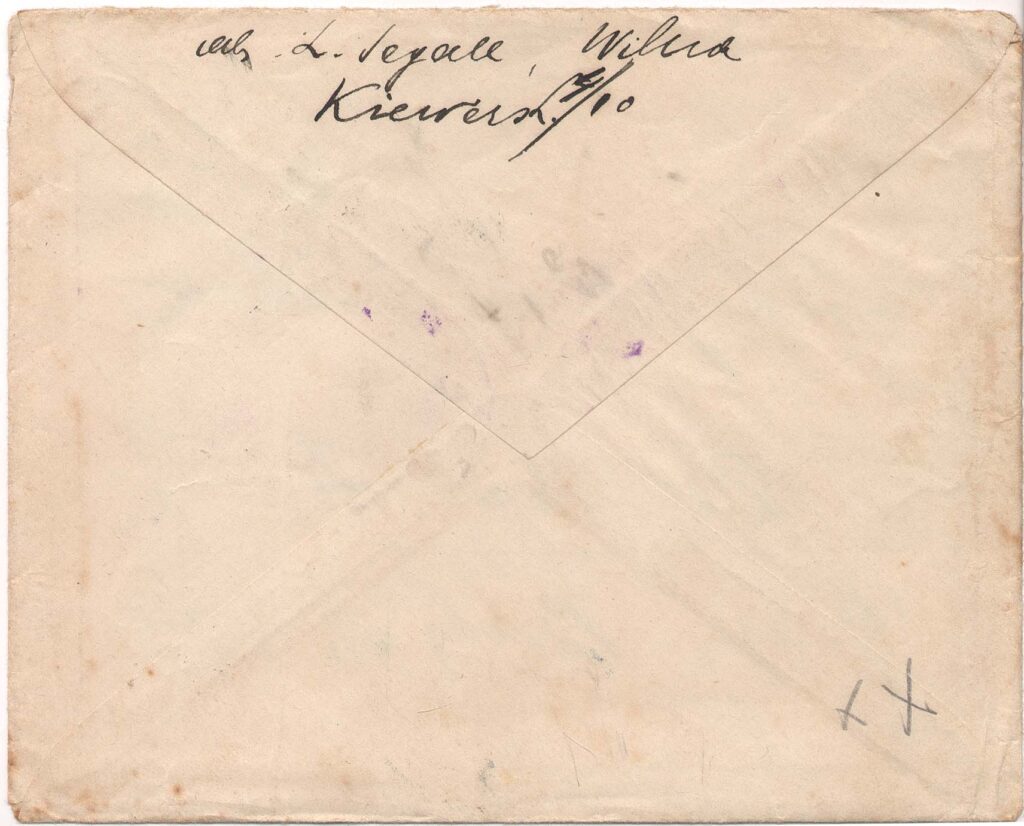 Abs. L. Segall, Wilna
Kiewersk. /10